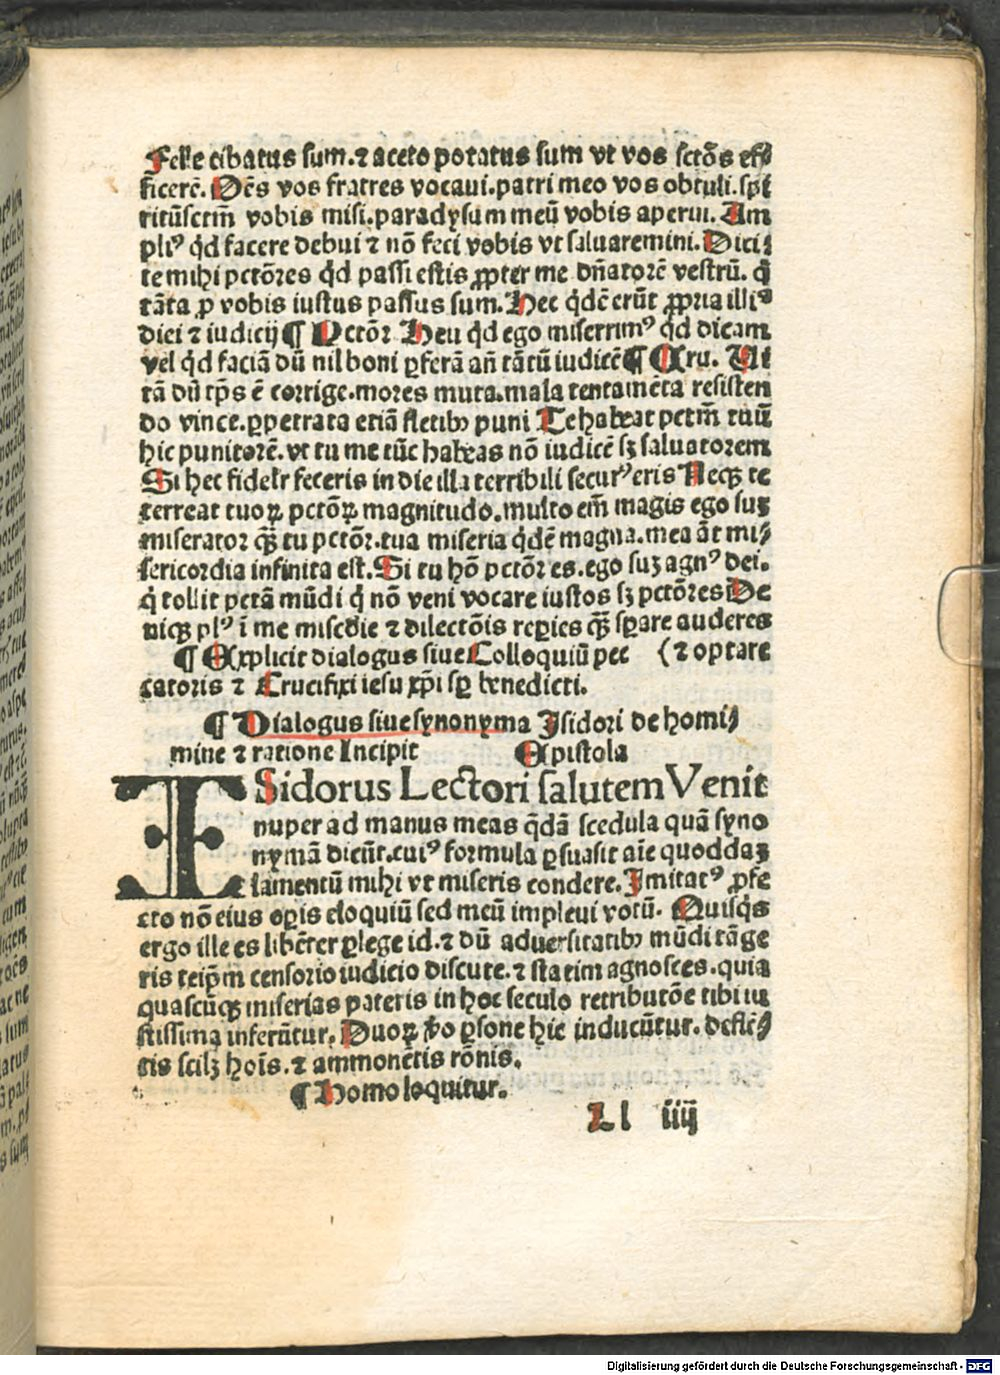 Felle cibatus sum.⁊ aceto potatus sum vt vos sctōs ef⸗
ficerē. Oēs vos fratres vocaui.patri meo vos obtuli.spi
ritūsctm̄ vobis misi.paradysum meū vobis aperui. Am
pliꝰ qd̄ facere debui ⁊ nō feci vobis vt saluaremini. Dici⸗
te mihi pctōres qd̄ passi estis ꝓpter me dn̄atorē vestrū. q̄
tāta ꝓ vobis iustus passus sum. Hec qdē erūt ꝓpria illiꝰ
diei ⁊ iudicij ¶ Pctōr Heu qd̄ ego miserrimꝰ qd̄ dicam
vel qd̄ faciā dū nil boni ꝑferā an̄ tātū iudicē ¶ Cru. Ui
tā dū tp̄s ē corrige.mores muta.mala tentamēta resisten
do vince.ꝑpetrata etiā fletibꝫ puni Te habeat pctm̄ tuū
hic punitorē.vt tu me tūc habeas nō iudicē sꝫ saluatorem
Si hec fidelr feceris in die illa terribili securꝰ eris Necꝫ te
terreat tuoꝝ pctōꝝ magnitudo.multo em̄ magis ego suꝫ
miserator qꝫ̄ tu pctōr.tua miseria qdē magna.mea āt mi⸗
sericordia infinita est. Si tu hō pctōr es.ego suꝫ agnꝰ dei.
q̄ tollit pctā mūdi q̄ nō veni vocare iustos sꝫ pctōres De
niqꝫ plꝰ ī me miscd̄ie ⁊ dilectōis reꝑies qꝫ̄ sꝑare auderes
¶ Explicit dialogus siue Colloquiū pec (⁊ optare
catoris ⁊ Crucifixi iesu xp̄i sꝑ benedicti.
¶ Dialogus siue synonyma Isidori de homi⸗
mine ⁊ ratione Incipit Epistola
ISidorus Lectori salutem Venit
nuper ad manus meas qdā scedula quā syno
nymā dicūt.cuiꝰ formula ꝑsuasit aīe quoddaꝫ
lamentū mihi vt miseris condere. Imitatꝰ ꝓfe
cto nō eius oꝑis eloquiū sed meū impleui votū. Quisqs
ergo ille es libēter ꝑlege id.⁊ dū aduersitatibꝫ mūdi tāge
ris teip̄m censorio iudicio discute.⁊ statim agnosces.quia
quascūqꝫ miserias pateris in hoc seculo retributōe tibi iu
stissima inferūtur. Duoꝝ v̄o ꝑsone hic inducūtur. deflē⸗
tis scilꝫ hoīs.⁊ ammonētis rōnis.
¶ Homo loquitur.
Ll iiij
Digitalisierung gefördert durch die Deutsche Forschungsgemeinschaft - DFG